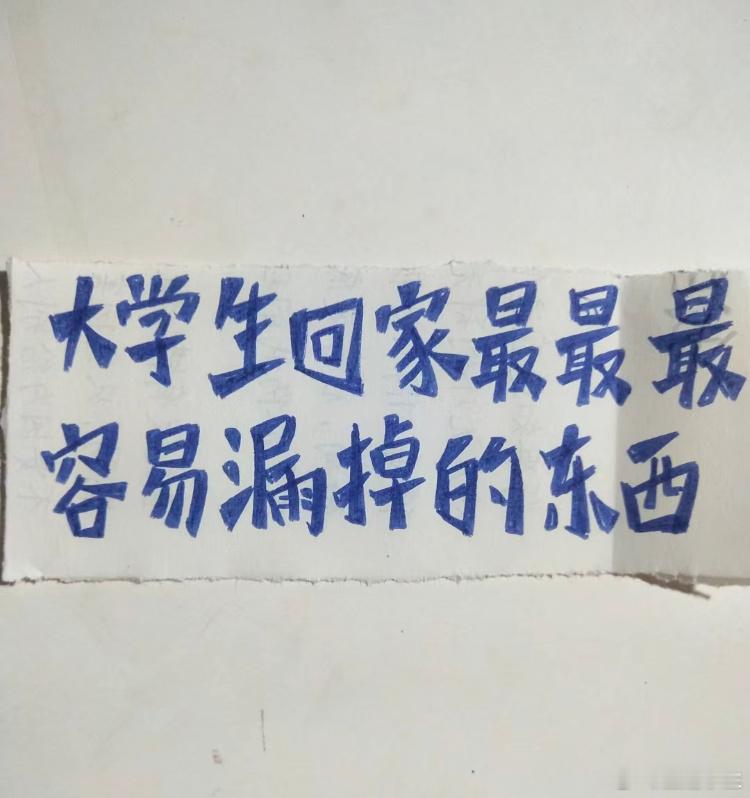 大学生回家最最最
容易漏掉的东西